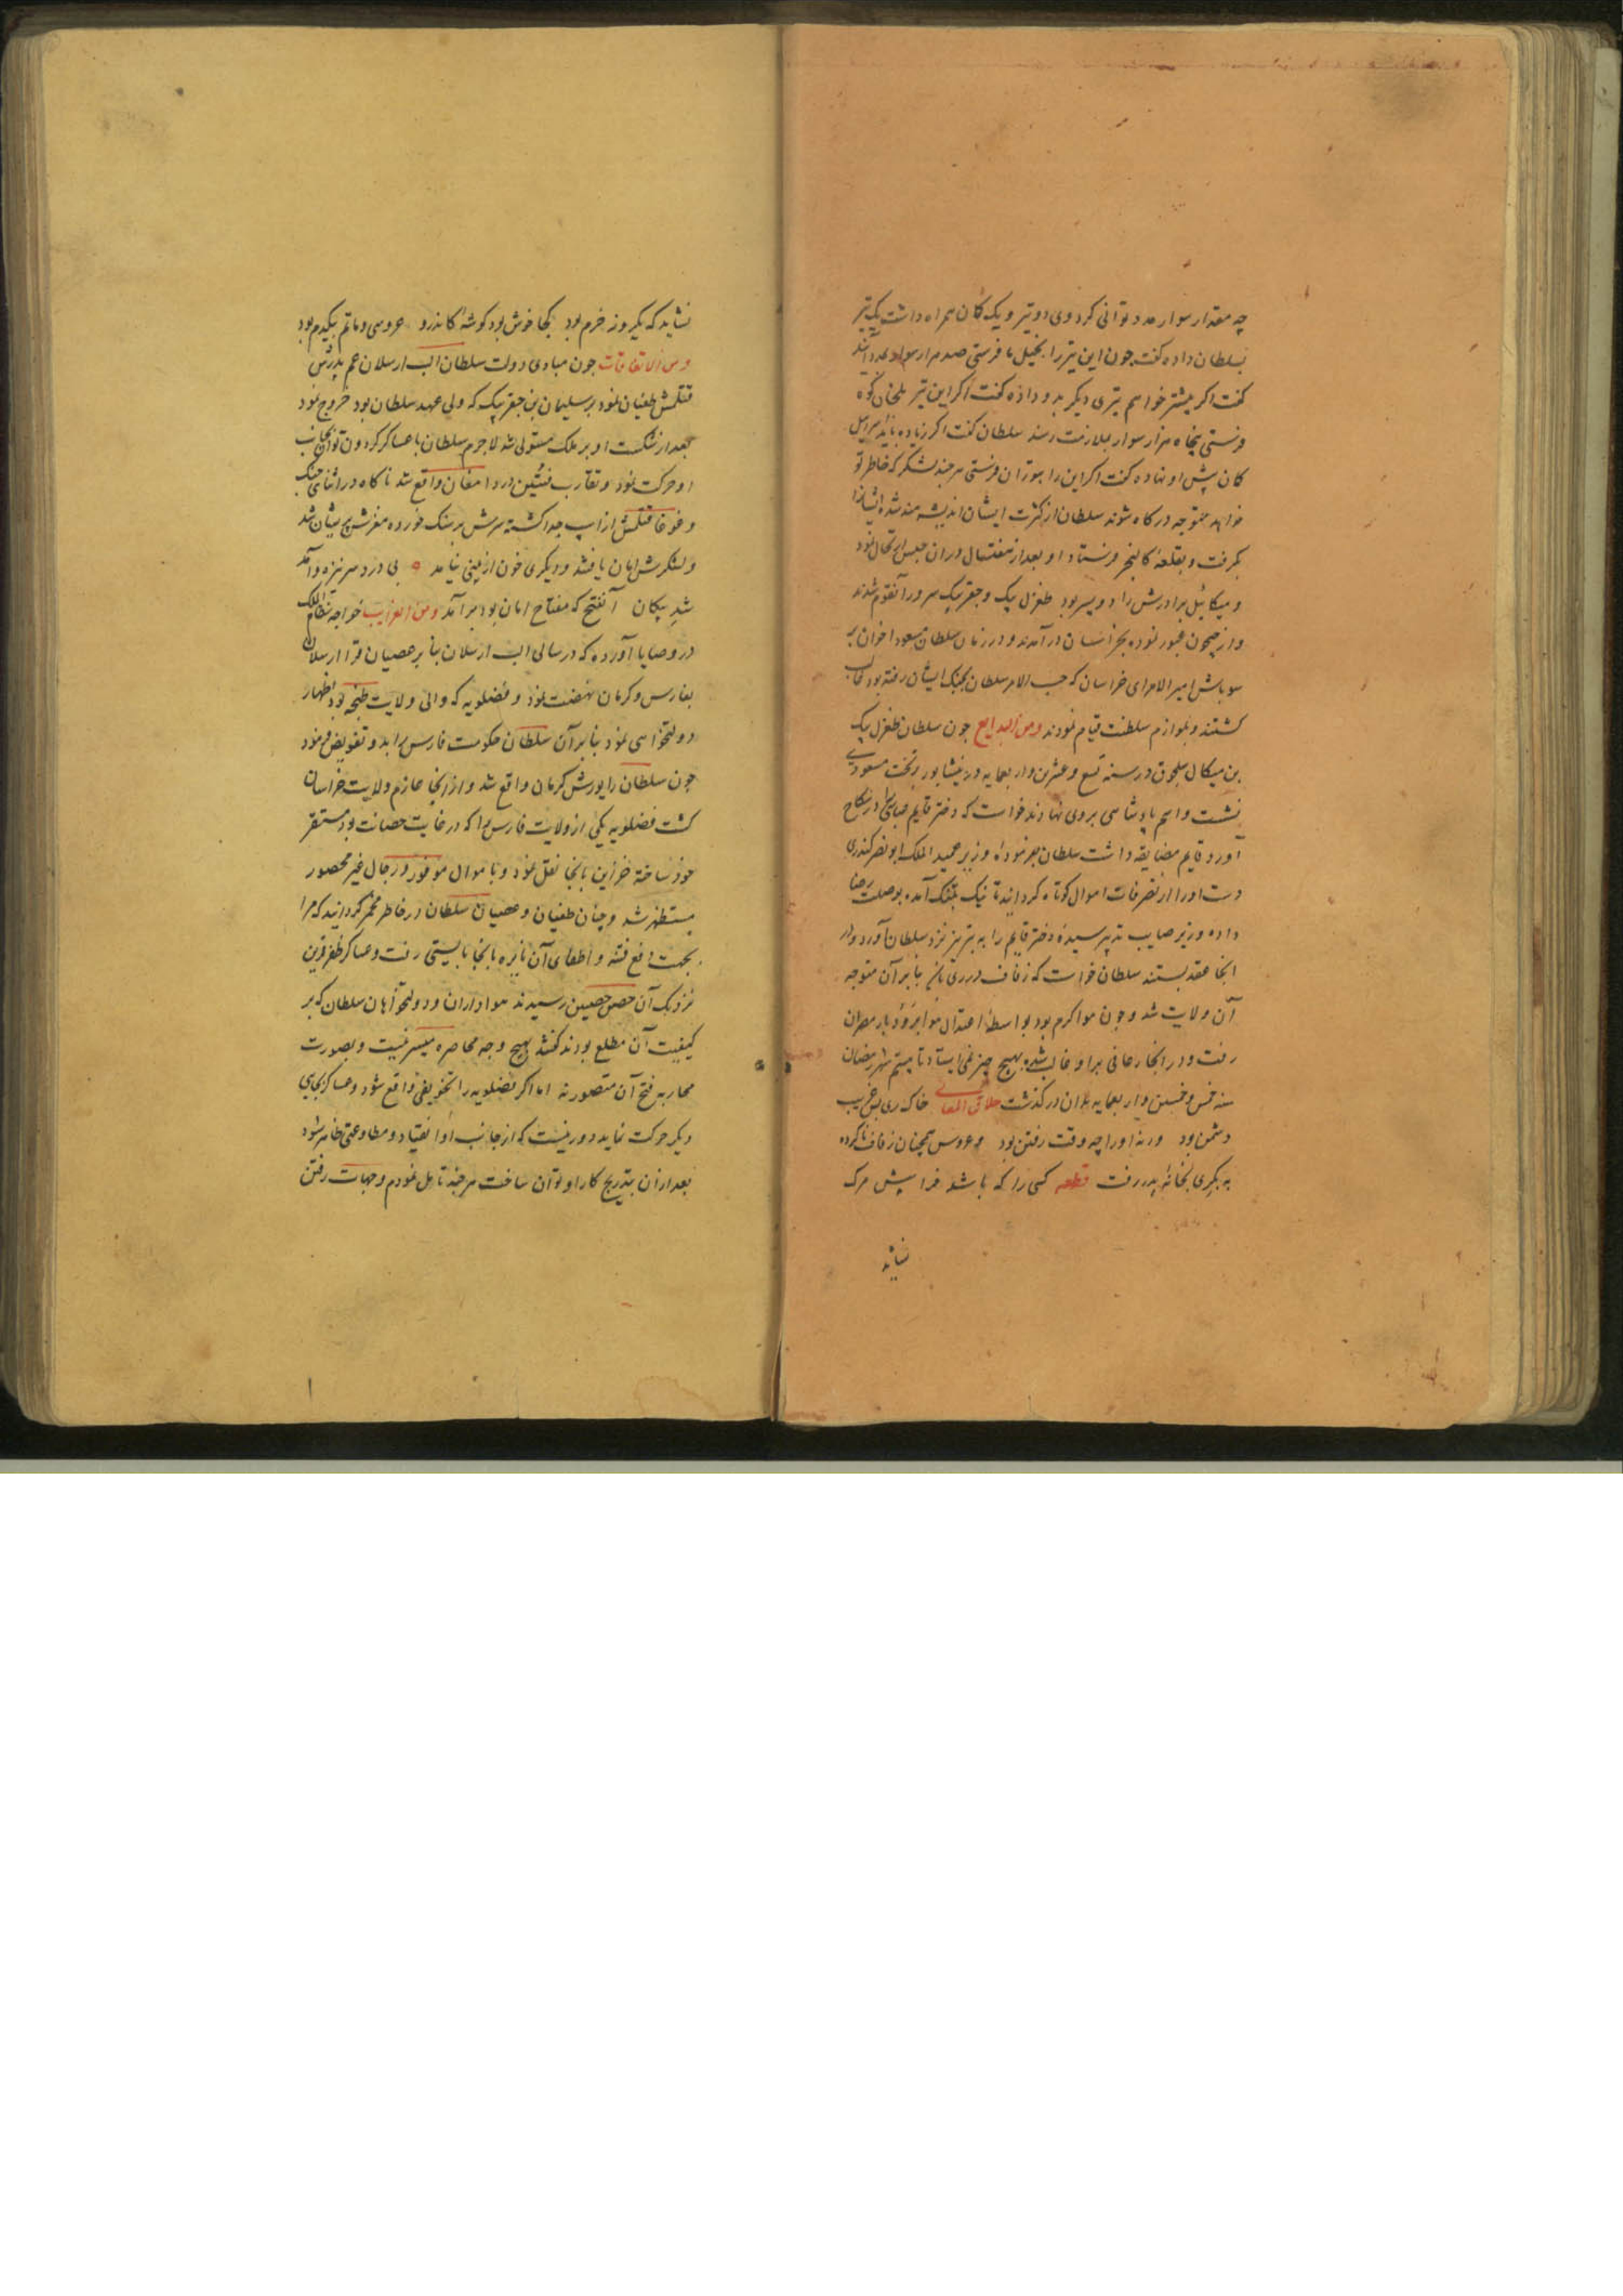 چه مقدار سوار مدد توانی کرد وی دو تیر و یک کمان همراه داشت یک تیر
بسلطان داده کفت چون این تیر را بخیل ما فرستی صد هزار سوار بمدد آیند
کفت اکر بیشتر خواهم تیری دیکر بدو داده کفت اکر این تیر ببلخان کوه
فرستی پنجاه هزار سوار بملازمت رسند سلطان کفت اکر زیاده باید اسرائیل
کمان پیش او نهاده کفت اکر این را بتوران فرستی هر چند لشکر که خاطر تو
خواهد متوجه درکاه شوند سلطان از کثرت ایشان اندیشه مند شده ایشانرا
بکرفت و بقلعه کالنجر فرستاد و او بعد از هفت سال دران حبس ارتحال نمود
و میکائیل برادرش را دو پسر بود طغرل بیک و جغر بیک سرور آنقوم شدند
و از جیحون عبور نموده بخراسان درآمدند و در زمان سلطان مسعود اخوان بر
سوباشی امیر الامرای خراسان که حسب الامر سلطان بجنک ایشان رفته بود غالب
کشتند و بلوازم سلطنت قیام نمودند ومن البدایع چون سلطان طغرل بیک
بن میکال سلجوق در سنه تسع و عشرین و اربعمایه در نیشابور بر تخت مسعودی
نشست و اسم پادشاهی بر وی نهادند خواست که دختر قایم عباسی را در نکاح
آورد قایم مضایقه داشت سلطان بفرموده وزیر عمید الملک ابو نصر کندری
دست او را از تصرفات اموال کوتاه کردانید تا نیک بتنک آمده بوصلت رضا
داده وزیر صایب تدبیر سیده دختر قایم را به تبریز نزد سلطان آورد و در
انجا عقد بستند سلطان خواست که زفاف در ری باشد بنابرآن متوجه
آن ولایت شد و چون هوا کرم بود بواسطه اعتدال هوا برودبار قصران
رفت و در انجا رعافی برو غالب شده بهیچ چیز نمی ایستاد تا بیستم شهر رمضان
سنه خمس و خمسین و اربعمایه بدان درکذشت خلاق المعانی خاک ری بس غریب
دشمن بود ورنه او را چه وقت رفتن بود و عروس همچنان زفاف ناکرده
به بکری بخانه پدر رفت قطعه کسی را که باشد فرا پیش مرک
نشاید
نشاید که یکروز خرم بود کجا خوش بود کوشه کاندرو عروسی و ماتم بیکدم بود
ومن الاتفاقات چون مبادی دولت سلطان الب ارسلان عم پدرش
قتلمش طغیان نمود بر سلیمان بن جغر بیک که ولی عهد سلطان بود خروج نمود
بعد از شکست او بر ملک مستولی شد لاجرم سلطان با عساکر کردون توان بجانب
او حرکت نمود و تقارب فئتین در دامغان واقع شد ناکاه در اثنای جنک
و غوغا قتلمش از اسپ جدا کشته سرش بر سنک خورده مغزش پریشان شد
و لشکرش امان یافتند و دیکری خون از بینی نیامد بی درد سر نیزه و آمد
شد پیکان آنفتح که مفتاح امان بود برآمد ومن الغرایب خواجه نظام الملک
در وصایا آورده که در سالی الب ارسلان بنابر عصیان قرا ارسلان
بفارس و کرمان نهضت نمود و فضلویه که والی ولایت بود اظهار
دولتخواهی نمود بنابرآن سلطان حکومت فارس را بدو تفویض فرمود
چون سلطان را یورش کرمان واقع شد و از انجا عازم ولایت خراسان
کشت فضلویه یکی از ولایت فارس را که در غایت حصانت بود مستقر
خود ساخته خزاین بانجا نقل نمود و با موال موفور و رجال غیر محصور
مستظهر شد و چنان طغیان و عصیان سلطان در خاطر مخمر کردانید که مرا
بجهت دفع فتنه و اطفای آن نایره بانجا بایستی رفت و عساکر ظفر قرین
نزدیک آن حصن حصین رسیدند هواداران و دولتخواهان سلطان که بر
کیفیت آن مطلع بودند کفتند بهیچ وجه محاصره میسر نیست و بصورت
محاربه فتح آن متصور نه اما اکر فضلویه را تخویفی واقع شود و عساکر بجایی
دیکر حرکت نماید دور نیست که از جانب او انقیاد و مطاوعتی ظاهر شود
بعد از ان بتدریج کار او توان ساخت هر چند تامل نمودم و جهات رفتن